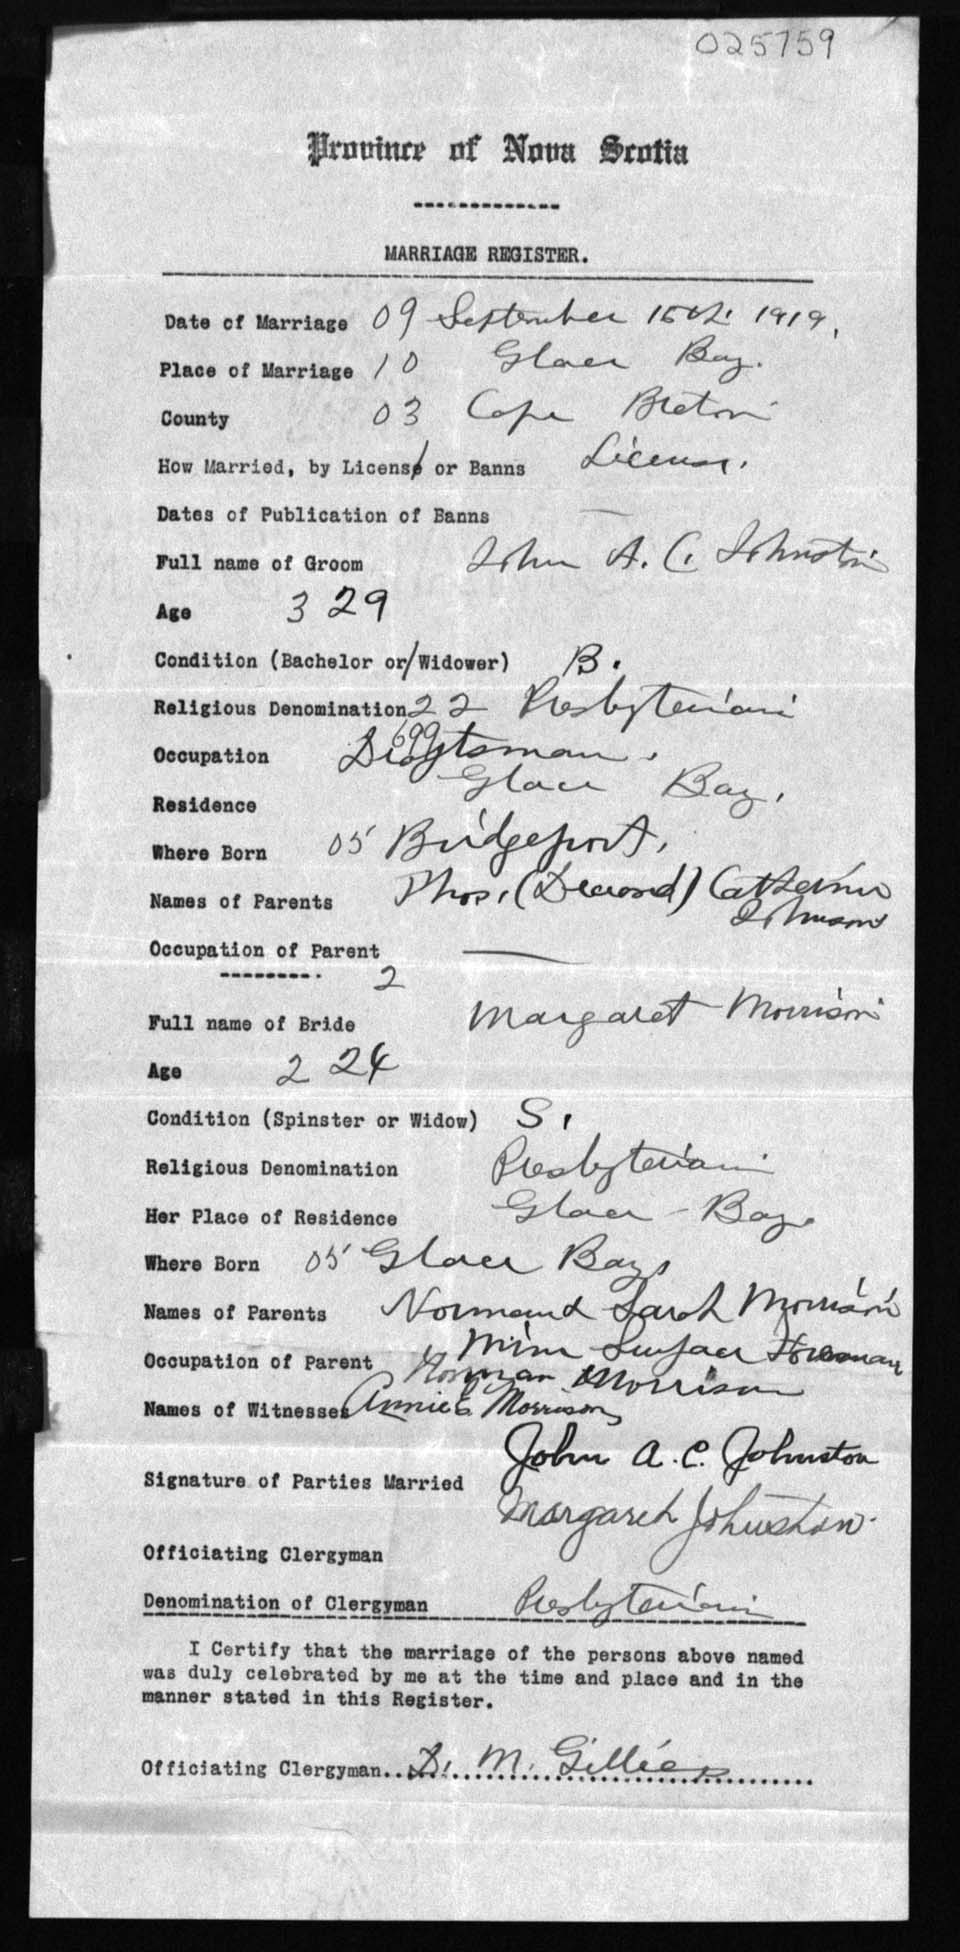 025759
Province of Nova Scotia
MARRIAGE REGISTER.
Date of Marriage 09 September 15th 1919.
Place of Marriage 10 Glace Bay.
County 03 Cape Breton
How Married, by License or Banns License.
Dates of Publication of Banns —
Full name of Groom John A. C. Johnston
Age 3 29
Condition (Bachelor or Widower) B.
Religious Denomination 22 Presbyterian
699
Occupation Draftsman.
Residence Glace Bay.
Where Born 05 Bridgeport.
Names of Parents Thos. (Deceased) Catherine
Johnson
Occupation of Parent —
2
Full name of Bride Margaret Morrison
Age 2 24
Condition (Spinster or Widow) S.
Religious Denomination Presbyterian
Her Place of Residence Glace - Bay.
Where Born 05 Glace Bay
Names of Parents Norman & Sarah Morrison
Occupation of Parent Mine Surface Foreman
Norman Morrison
Names of Witnesses Annie E. Morrison
John A. C. Johnston
Signature of Parties Married
Margaret Johnston.
Officiating Clergyman
Denomination of Clergyman Presbyterian
I Certify that the marriage of the persons above named
was duly celebrated by me at the time and place and in the
manner stated in this Register.
Officiating Clergyman.. D. M. Gillies